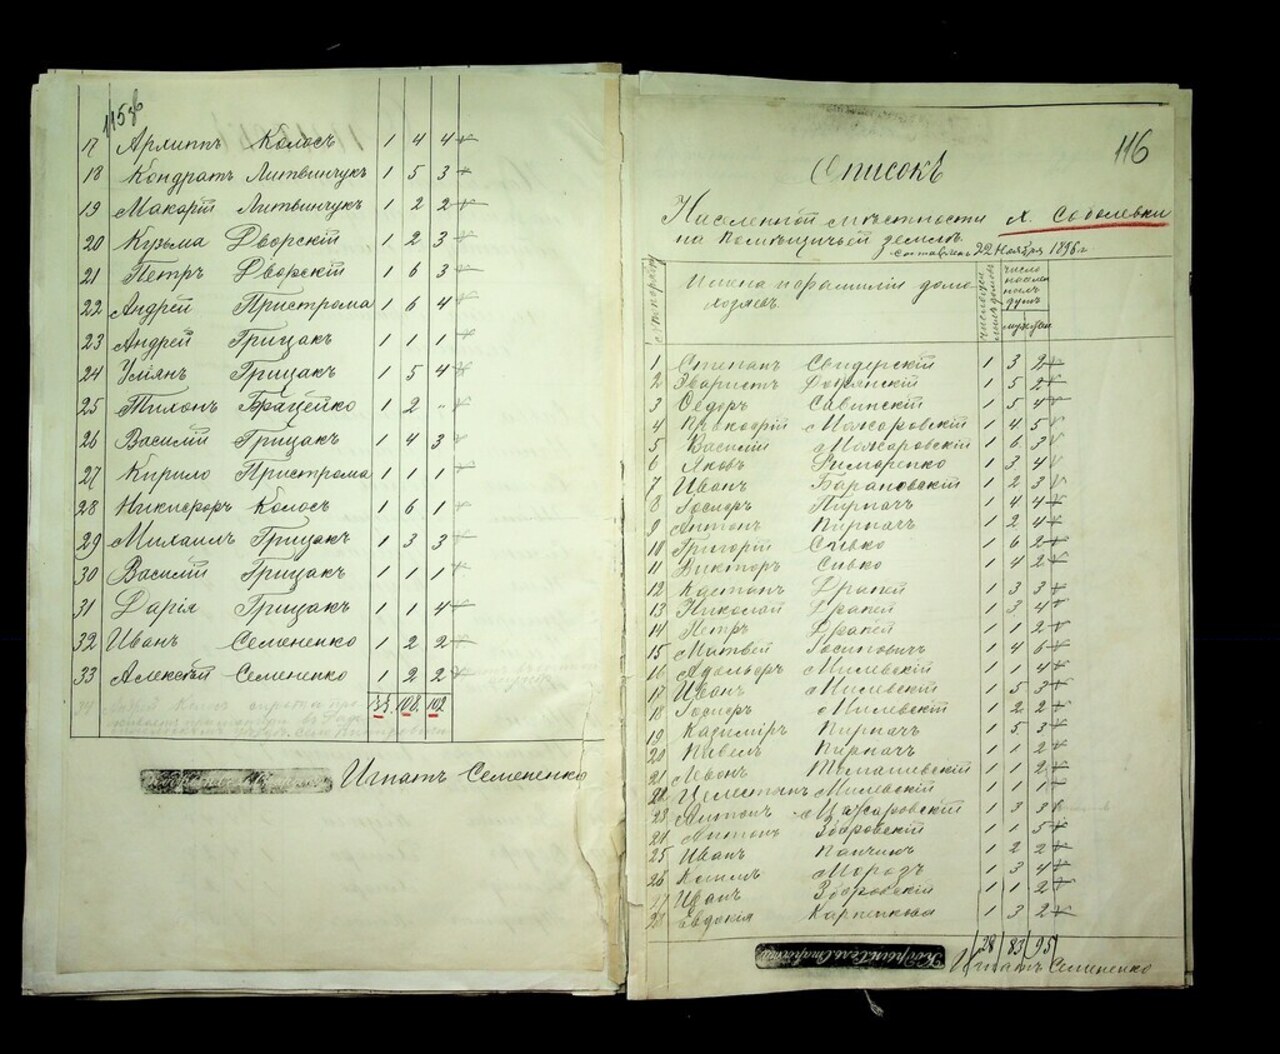 17 Архиппъ Колосъ 1 4 4
18 Кондратъ Литвинчукъ 1 5 3
19 Макарій Литвинчукъ 1 2 2
20 Кузьма Дворскій 1 2 3
21 Петръ Дворскій 1 6 3
22 Андрей Пристрома 1 6 4
23 Андрей Грицакъ 1 1 1
24 Уліянъ Грицакъ 1 5 4
25 Тихонъ Брацейко 1 2 "
26 Василій Грицакъ 1 4 3
27 Кирило Пристрома 1 1 1
28 Никифоръ Колосъ 1 6 1
29 Михаилъ Грицакъ 1 3 3
30 Василій Грицакъ 1 1 1
31 Дарія Грицакъ 1 1 4
32 Иванъ Семененко 1 2 2
33 Алексѣй Семененко 1 2 2
34
33. 108. 102
Игнатъ Семененко
116
Списокъ
Населенной мѣстности х. Соболевки
на Помѣщичьей землѣ
составленъ 22 Ноября 1896 г.
Имена и фамиліи домо-
хозяевъ
число
муж жен
1 Степанъ Свидерскій 1 3 2
2 Эваристъ 1 5 2
3 Ѳедоръ Савинскій 1 5 4
4 Прокофій Мажаровскій 1 4 5
5 Василій Мажаровскій 1 6 3
6 Яковъ Римаренко 1 3 4
7 Иванъ Барановскій 1 2 3
8 Іосифъ Пирначъ 1 4 4
9 Антонъ Пирначъ 1 2 4
10 Григорій Сивко 1 6 2
11 Викторъ Сивко 1 4 2
12 Драпей 1 3 3
13 Николай Драпей 1 3 4
14 Петръ Драпей 1 1 2
15 Матвей Іосиповичъ 1 4 6
16 Адольфъ Милевскій 1 1 4
17 Иванъ Милевскій 1 5 3
18 Іосифъ Милевскій 1 2 2
19 Казиміръ Пирначъ 1 5 3
20 Павелъ Пирначъ 1 1 2
21 Левонъ Томашевскій 1 1 2
22 Целестинъ Милевскій 1 1 1
23 Антонъ Мажаровскій 1 3 3
24 Антонъ Здоровскій 1 1 5
25 Иванъ Панчукъ 1 2 2
26 Морозъ 1 3 4
27 Иванъ Здоровскій 1 1 2
28 Евдокія Карпенкова 1 3 2
28 83 95
Игнатъ Семененко